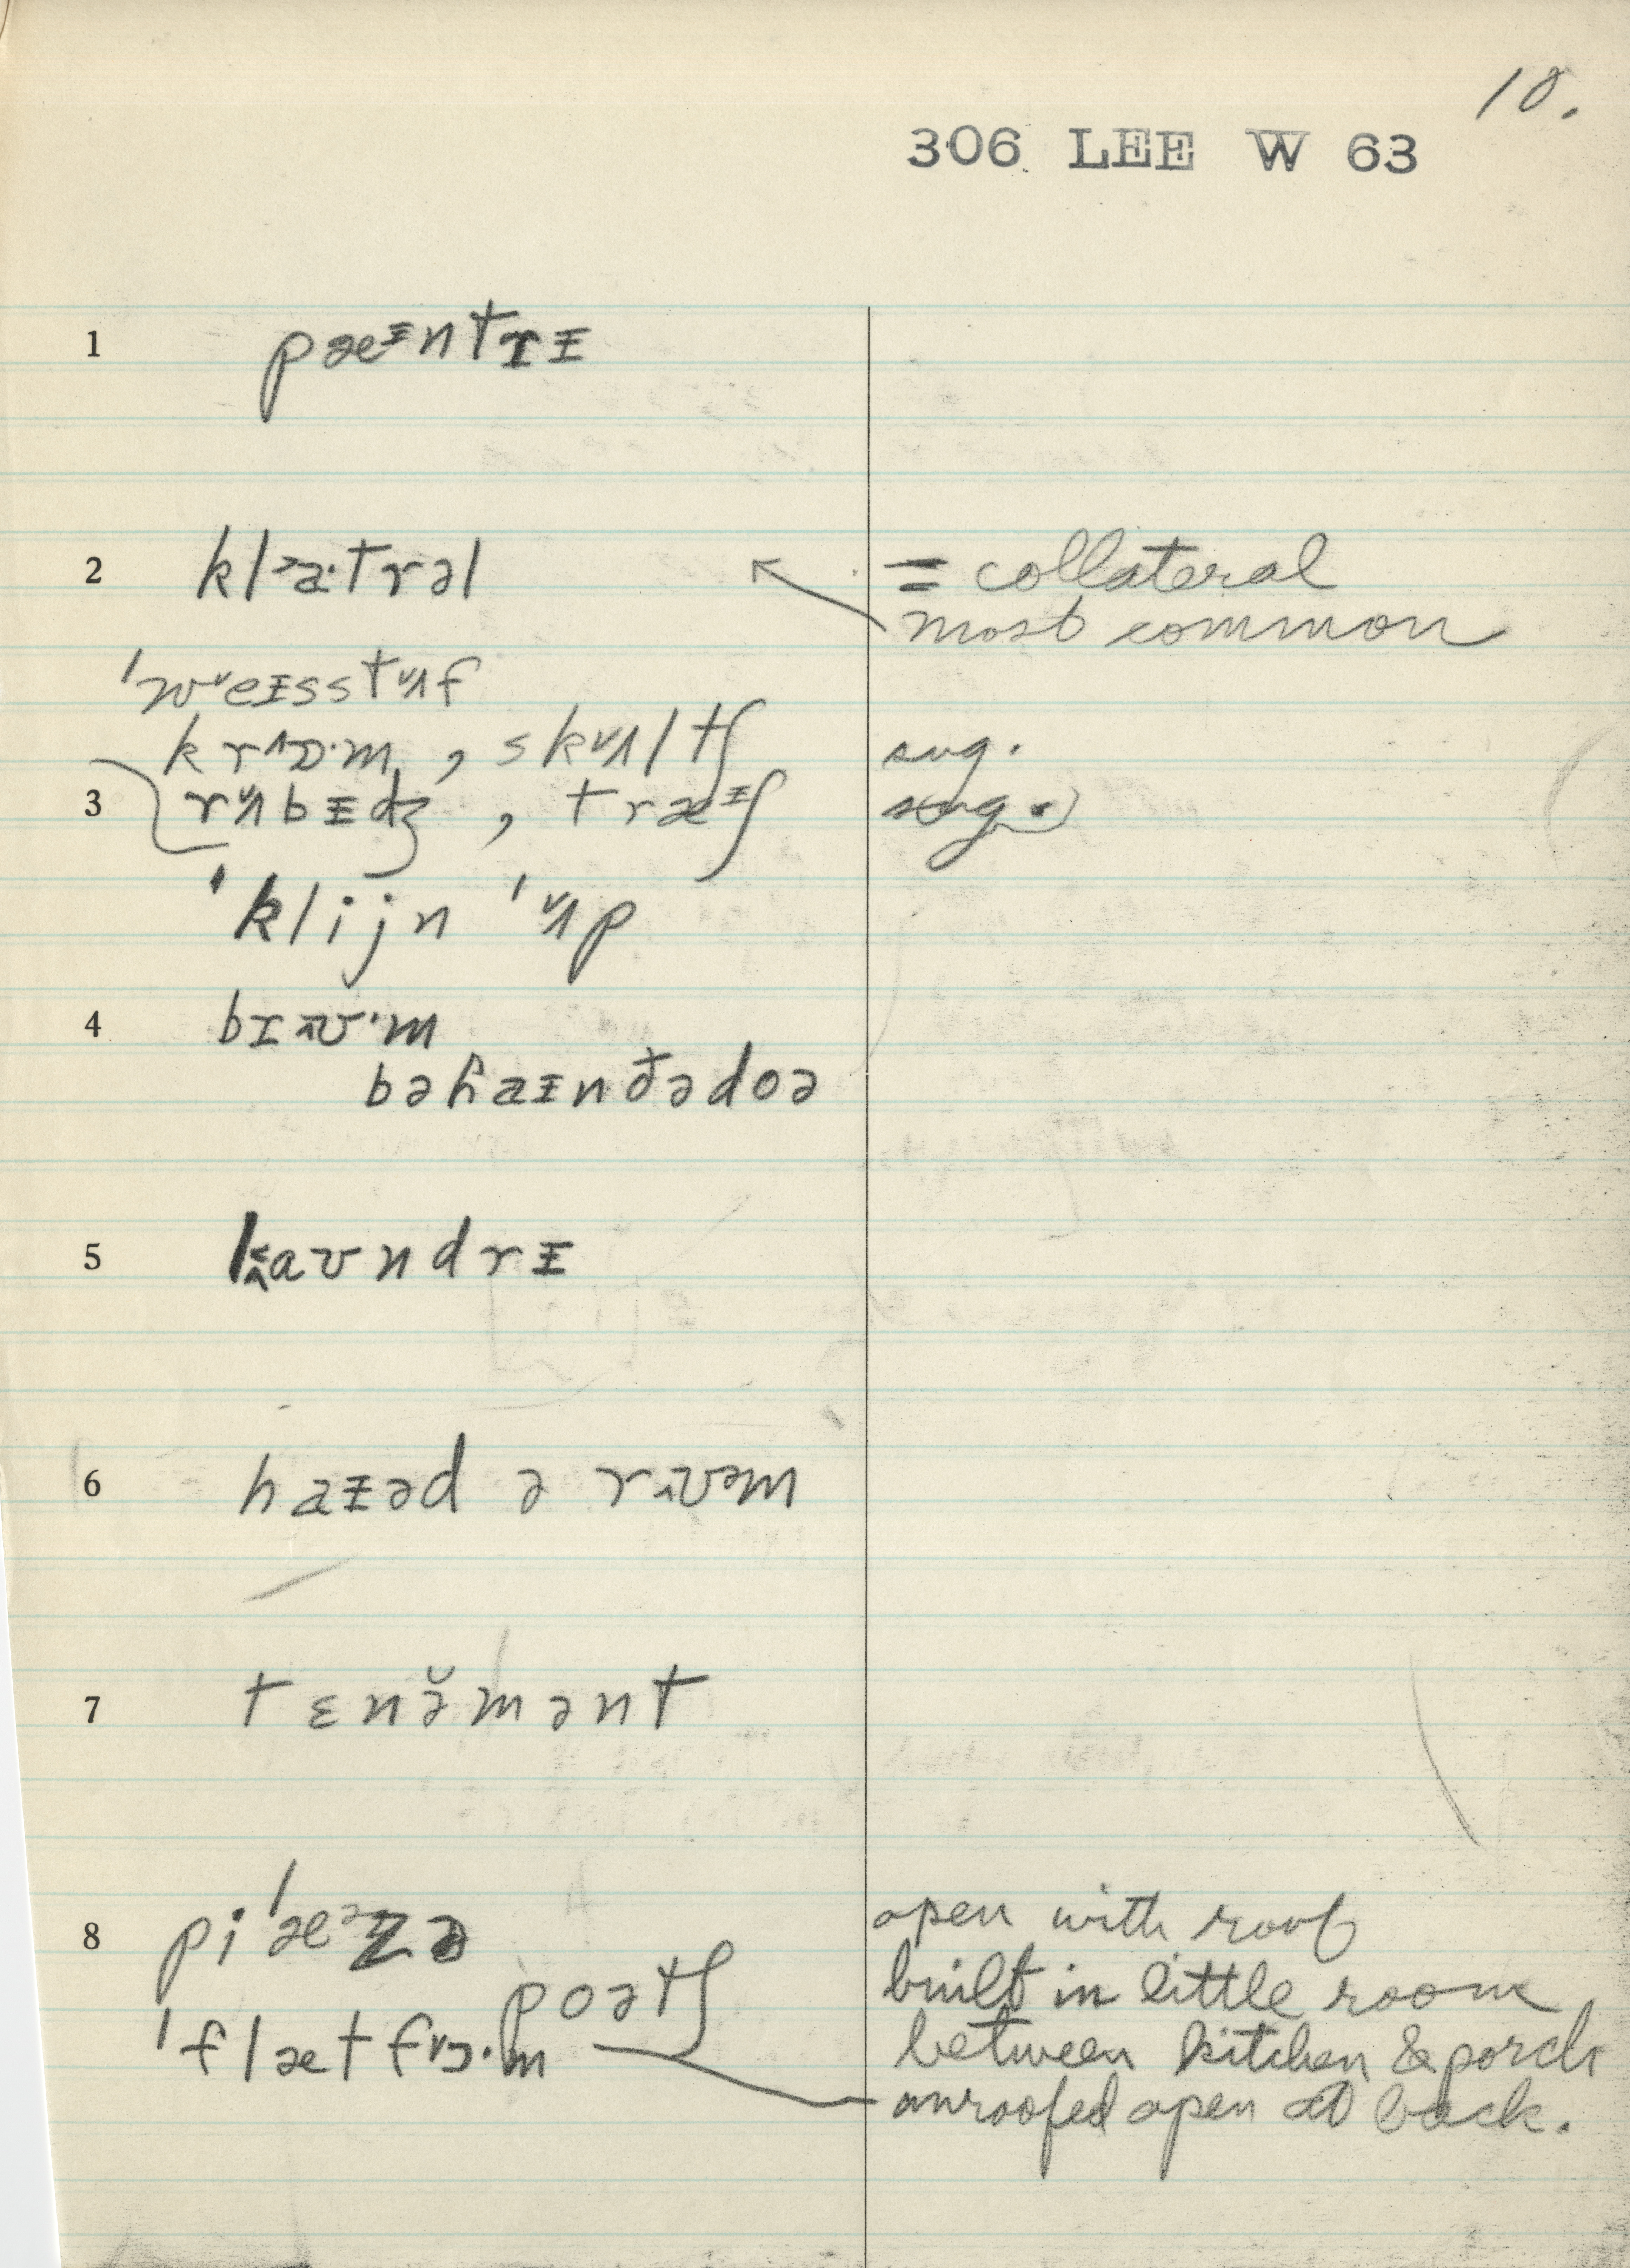 10.
306 LEE W 63
1 pæᵻntrᵻ
2 klᵊa·trəl = collateral
most common
ˈweᵻsstʌf
krɒ·m, skʌltʃ sug.
3 rʌbᵻdʒ, træᵻʃ sug.
ˈklijn ˈʌp
4 brʊ·m
bəɦaᵻnðədoə
5 laʊndrᵻ
6 haᵻəd ə rʊəm
7 tɛnə̆mənt
8 piˈæᵊzə open with roof
poətʃ built in little room
ˈflætfɔ·m between kitchen & porch
unroofed open at back.